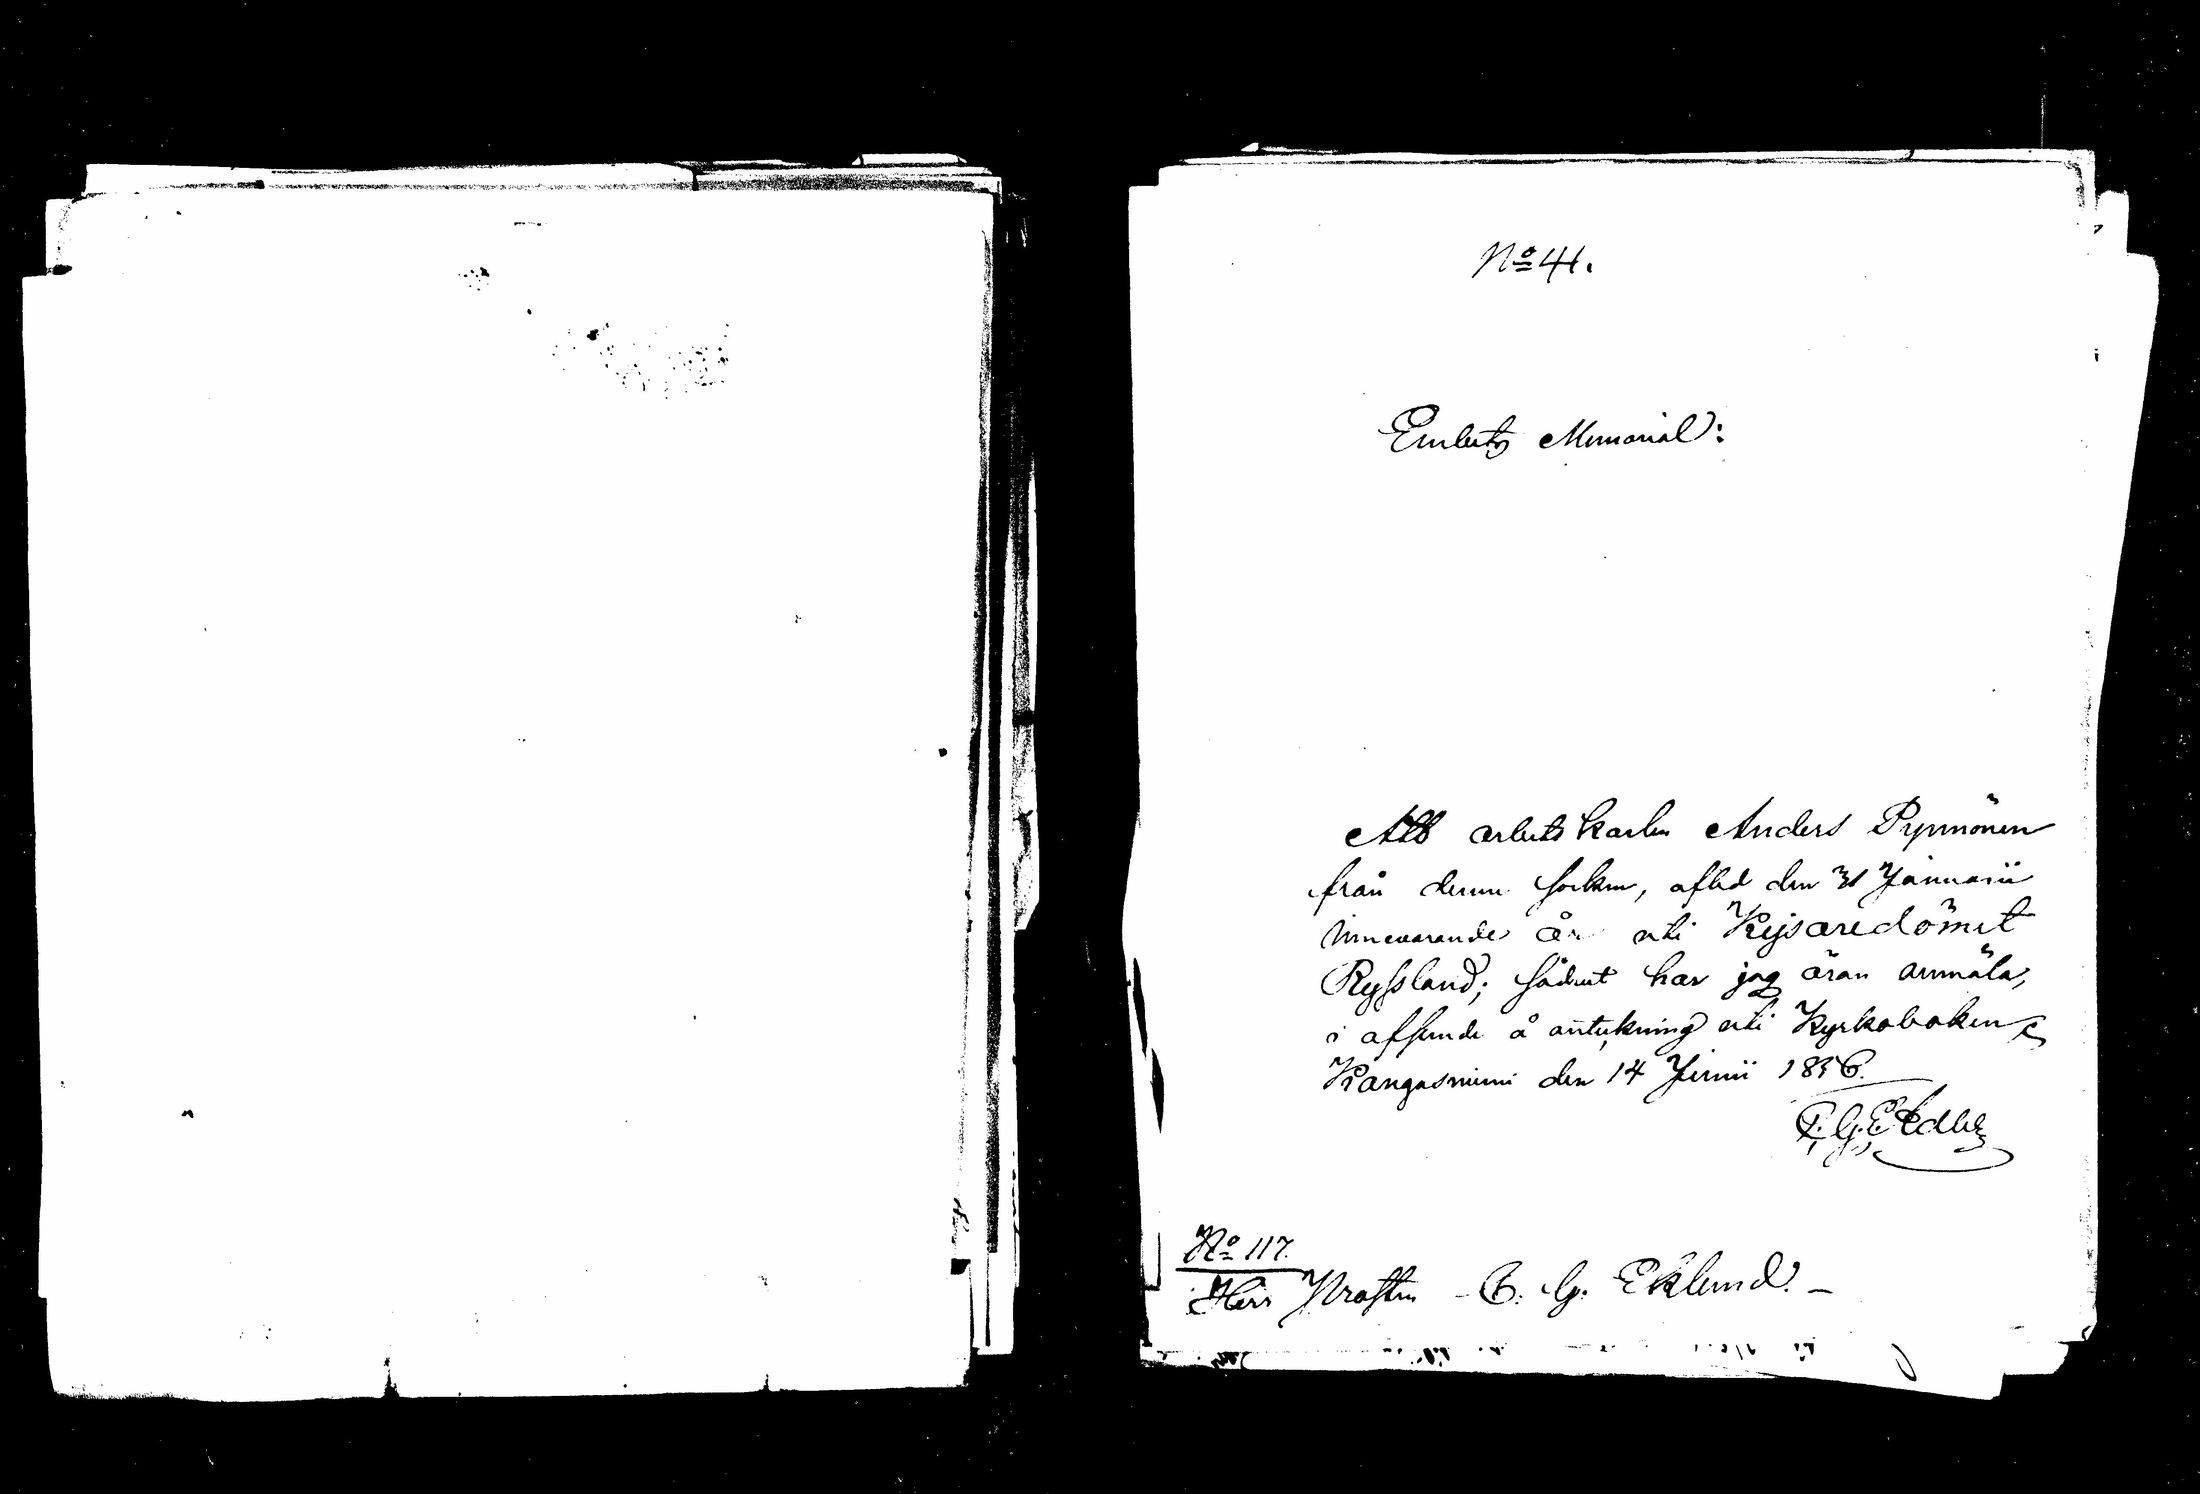 No 41.
Embets Memorial:
Att arbetskarlen Anders Pynnönen
från denna socken, afled den 31 Januarii
innevarande år uti Kejsaredömet
Ryssland; sådant har jag äran anmäla,
i afseende å anteckning uti Kyrkoboken
Kangasniemi den 14 Junii 1856.
No 117.
Herr Prosten C. G. Eklund.